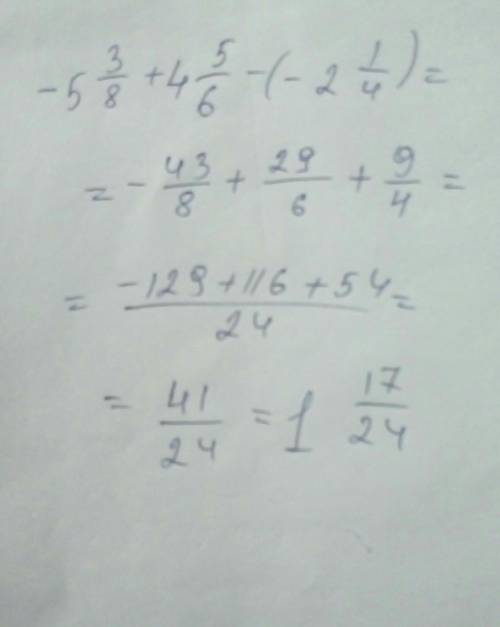 -5 3/8 + 4 5/6 - (- 2 1/4) =
= - 43/8 + 29/6 + 9/4 =
= (-129 + 116 + 54)/24 =
= 41/24 = 1 17/24